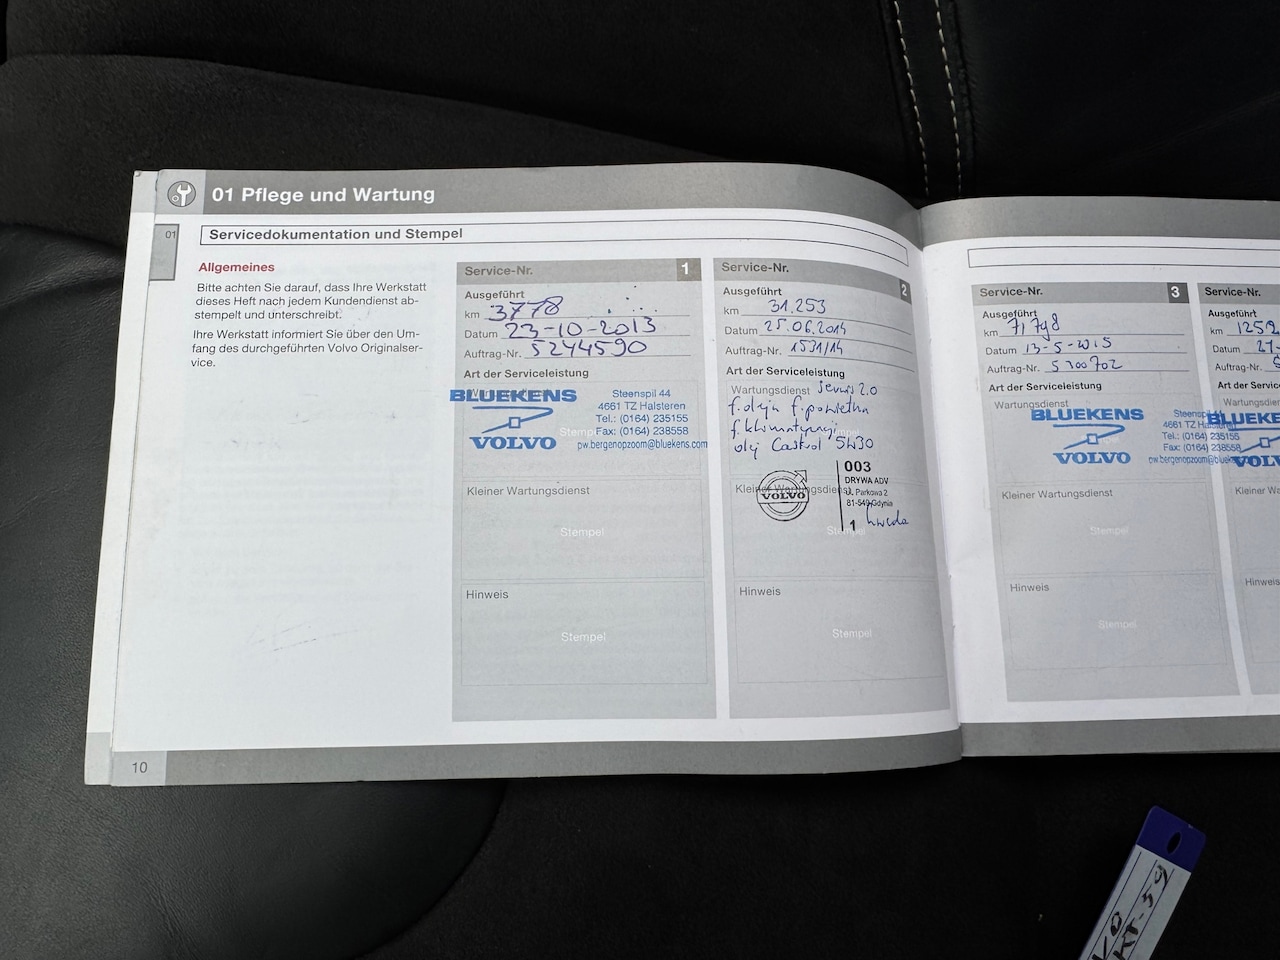 01 Pflege und Wartung
01
Servicedokumentation und Stempel
Allgemeines
Bitte achten Sie darauf, dass Ihre Werkstatt
dieses Heft nach jedem Kundendienst ab-
stempelt und unterschreibt.
Ihre Werkstatt informiert Sie über den Um-
fang des durchgeführten Volvo Originalser-
vice.
Service-Nr. 1
Ausgeführt
km 3778
Datum 23-10-2013
Auftrag-Nr. 5244590
Art der Serviceleistung
Wartungsdienst
BLUEKENS
VOLVO
Steenspil 44
4661 TZ Halsteren
Tel.: (0164) 235155
Fax: (0164) 238558
pw.bergenopzoom@bluekens.com
Kleiner Wartungsdienst
Stempel
Hinweis
Stempel
Service-Nr. 2
Ausgeführt
km 31.253
Datum 25.06.2014
Auftrag-Nr. 1531/14
Art der Serviceleistung
Wartungsdienst serwis 2.0
f. oleju f. powietrza
f. klimatyzacji
olej Castrol 5W30
Kleiner Wartungsdienst
VOLVO
003
DRYWA ADV
ul. Parkowa 2
81-549 Gdynia
1
Stempel
Hinweis
Stempel
Service-Nr. 3
Ausgeführt
km 71798
Datum 13-5-2015
Auftrag-Nr. 5300702
Art der Serviceleistung
Wartungsdienst
BLUEKENS
VOLVO
Steenspil 44
4661 TZ
Tel.: (0164) 235155
Fax: (0164) 238558
Kleiner Wartungsdienst
Stempel
Hinweis
Stempel
Service-Nr.
Ausgeführt
km 1252
Datum 27-
Auftrag-Nr.
Art der Service
Wartungsdiens
BLUEKE
VOLV
Kleiner Wa
Hinweis
10